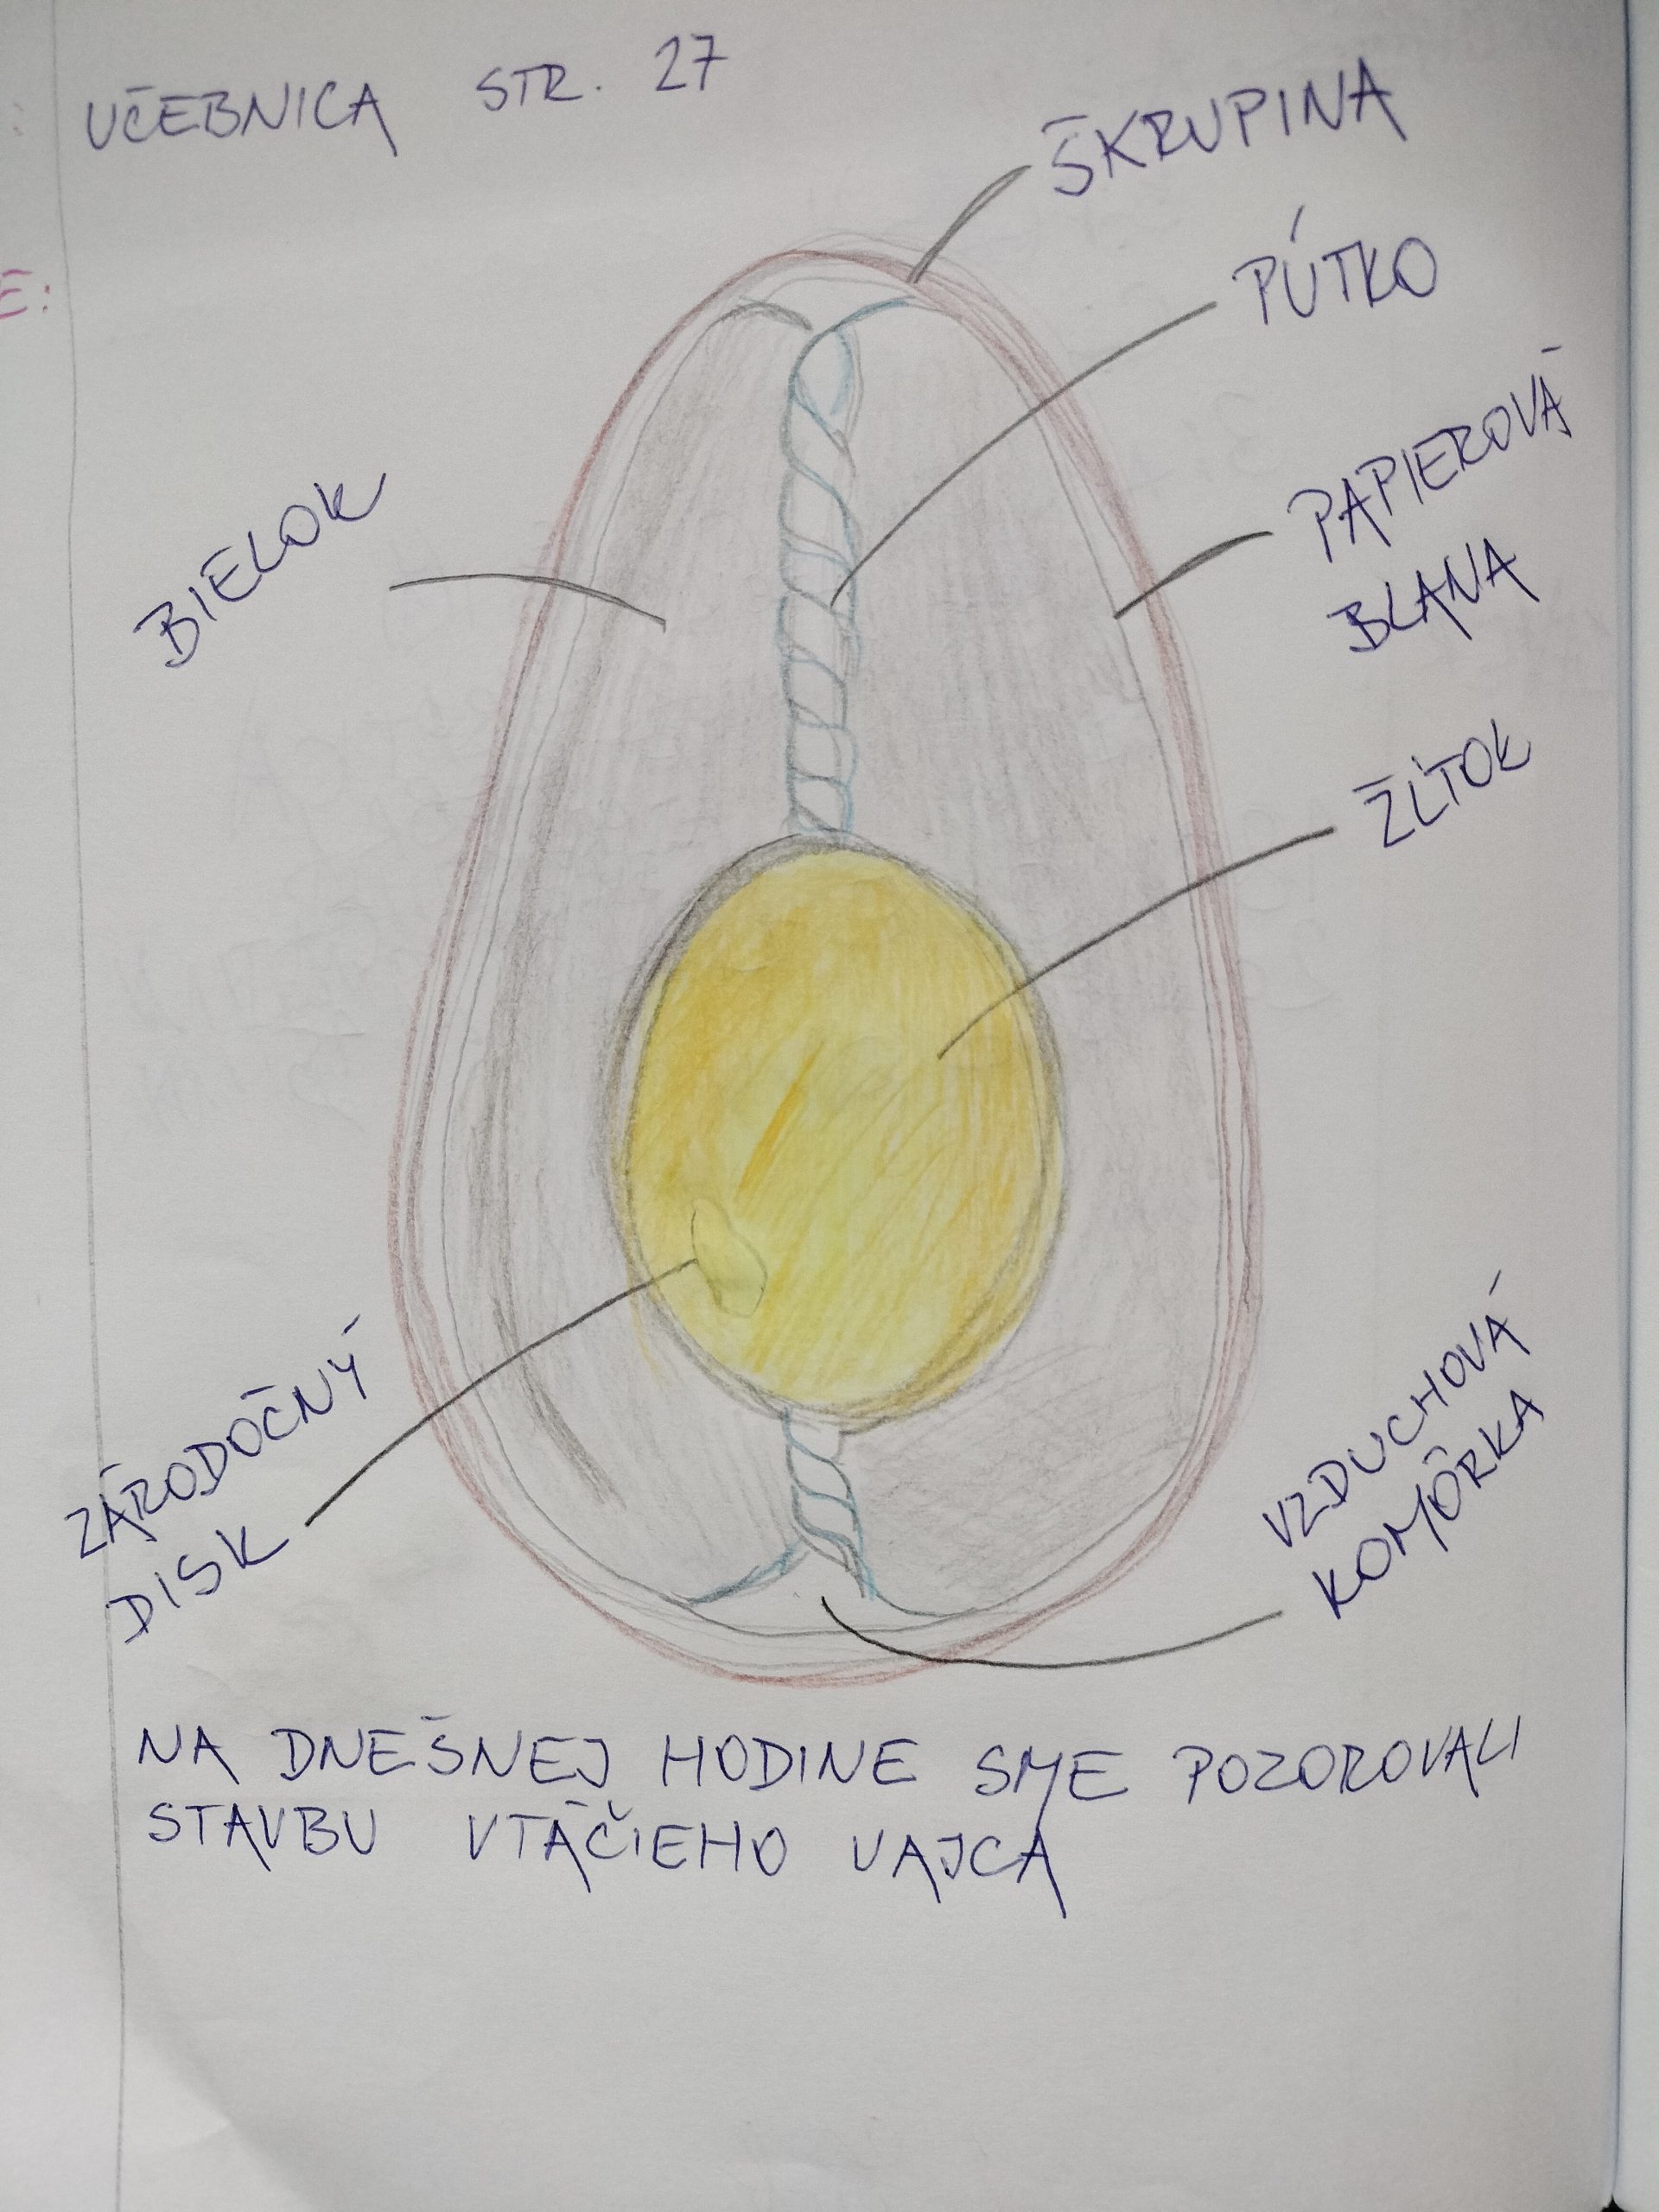 UČEBNICA STR. 27
ŠKRUPINA
PÚTKO
E:
PAPIEROVÁ
BLANA
BIELOK
ŽĹTOK
ZÁRODOČNÝ
DISK
VZDUCHOVÁ
KOMÔRKA
NA DNEŠNEJ HODINE SME POZOROVALI
STAVBU VTÁČIEHO VAJCA